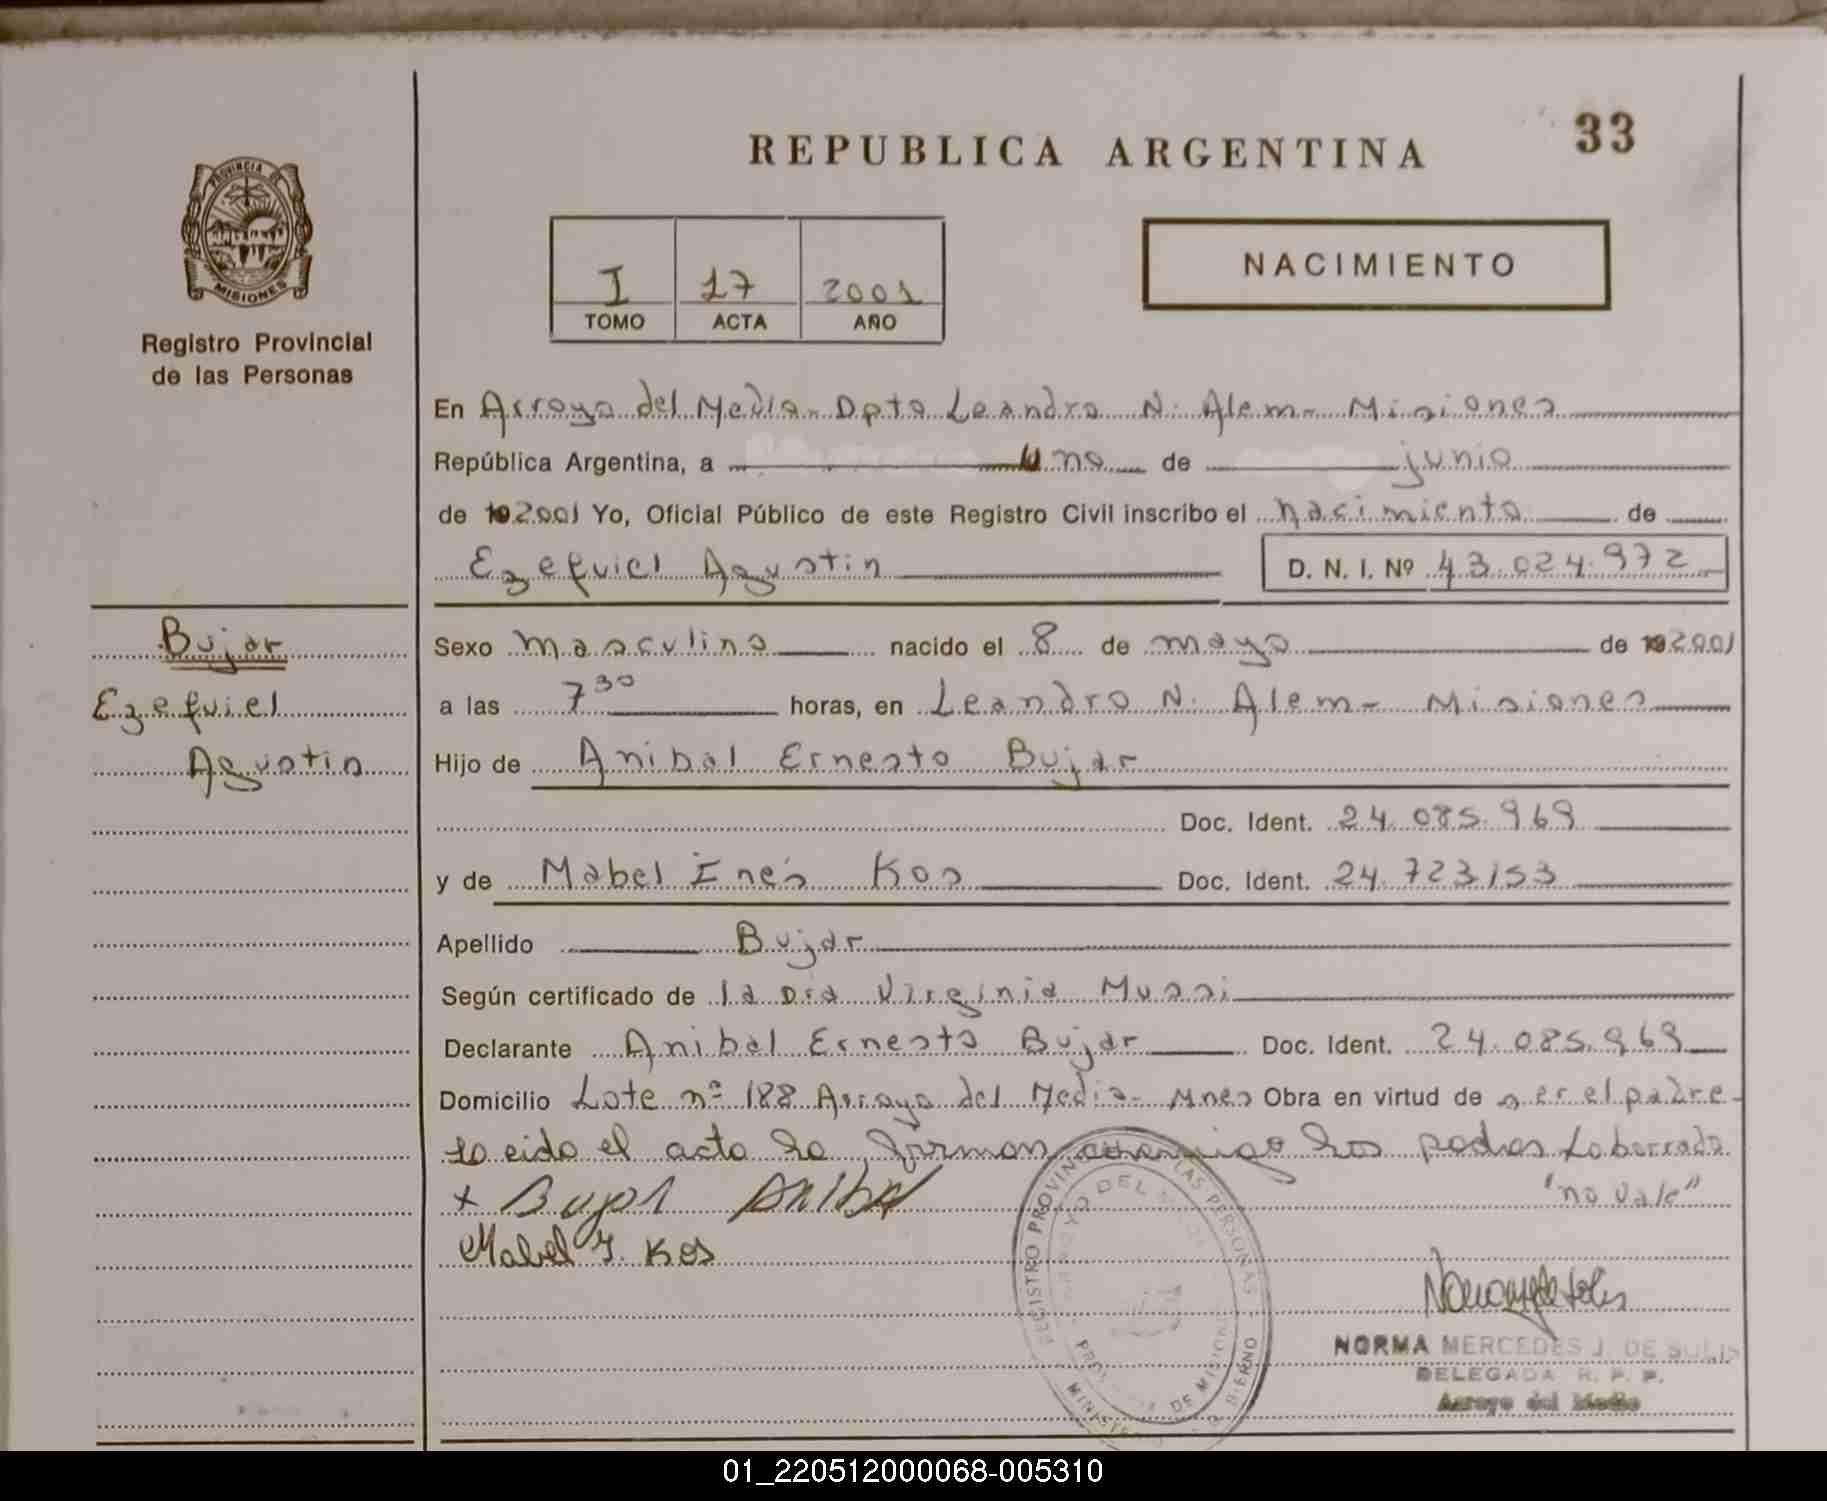 REPUBLICA ARGENTINA
33
PROVINCIA DE
MISIONES
Registro Provincial
de las Personas
I 17 2001
TOMO ACTA AÑO
NACIMIENTO
En Arroyo del Medio - Dpto Leandro N. Alem - Misiones
República Argentina, a uno de junio
de 192001 Yo, Oficial Público de este Registro Civil inscribo el nacimiento de
Ezequiel Agustin D. N. I. Nº 43.024.972
Bujar
Ezequiel
Agustin
Sexo masculino nacido el 8 de mayo de 192001
a las 7 30 horas, en Leandro N. Alem - Misiones
Hijo de Anibal Ernesto Bujar
Doc. Ident. 24.085.969
y de Mabel Inés Kos Doc. Ident. 24.723.153
Apellido Bujar
Según certificado de la Dra Virginia Mussi
Declarante Anibal Ernesto Bujar Doc. Ident. 24.085.969
Domicilio Lote nº 188 Arroyo del Medio - Mnes Obra en virtud de ser el padre -
Leido el acta la firman conmigo los padres Lo borrado
"no vale"
x Bujar Anibal
Mabel I. Kos
REGISTRO PROVINCIAL DE LAS PERSONAS
ARROYO DEL MEDIO
PROVINCIA DE MISIONES
NORMA MERCEDES J. DE SOLIS
DELEGADA R. P. P.
Arroyo del Medio
01_220512000068-005310